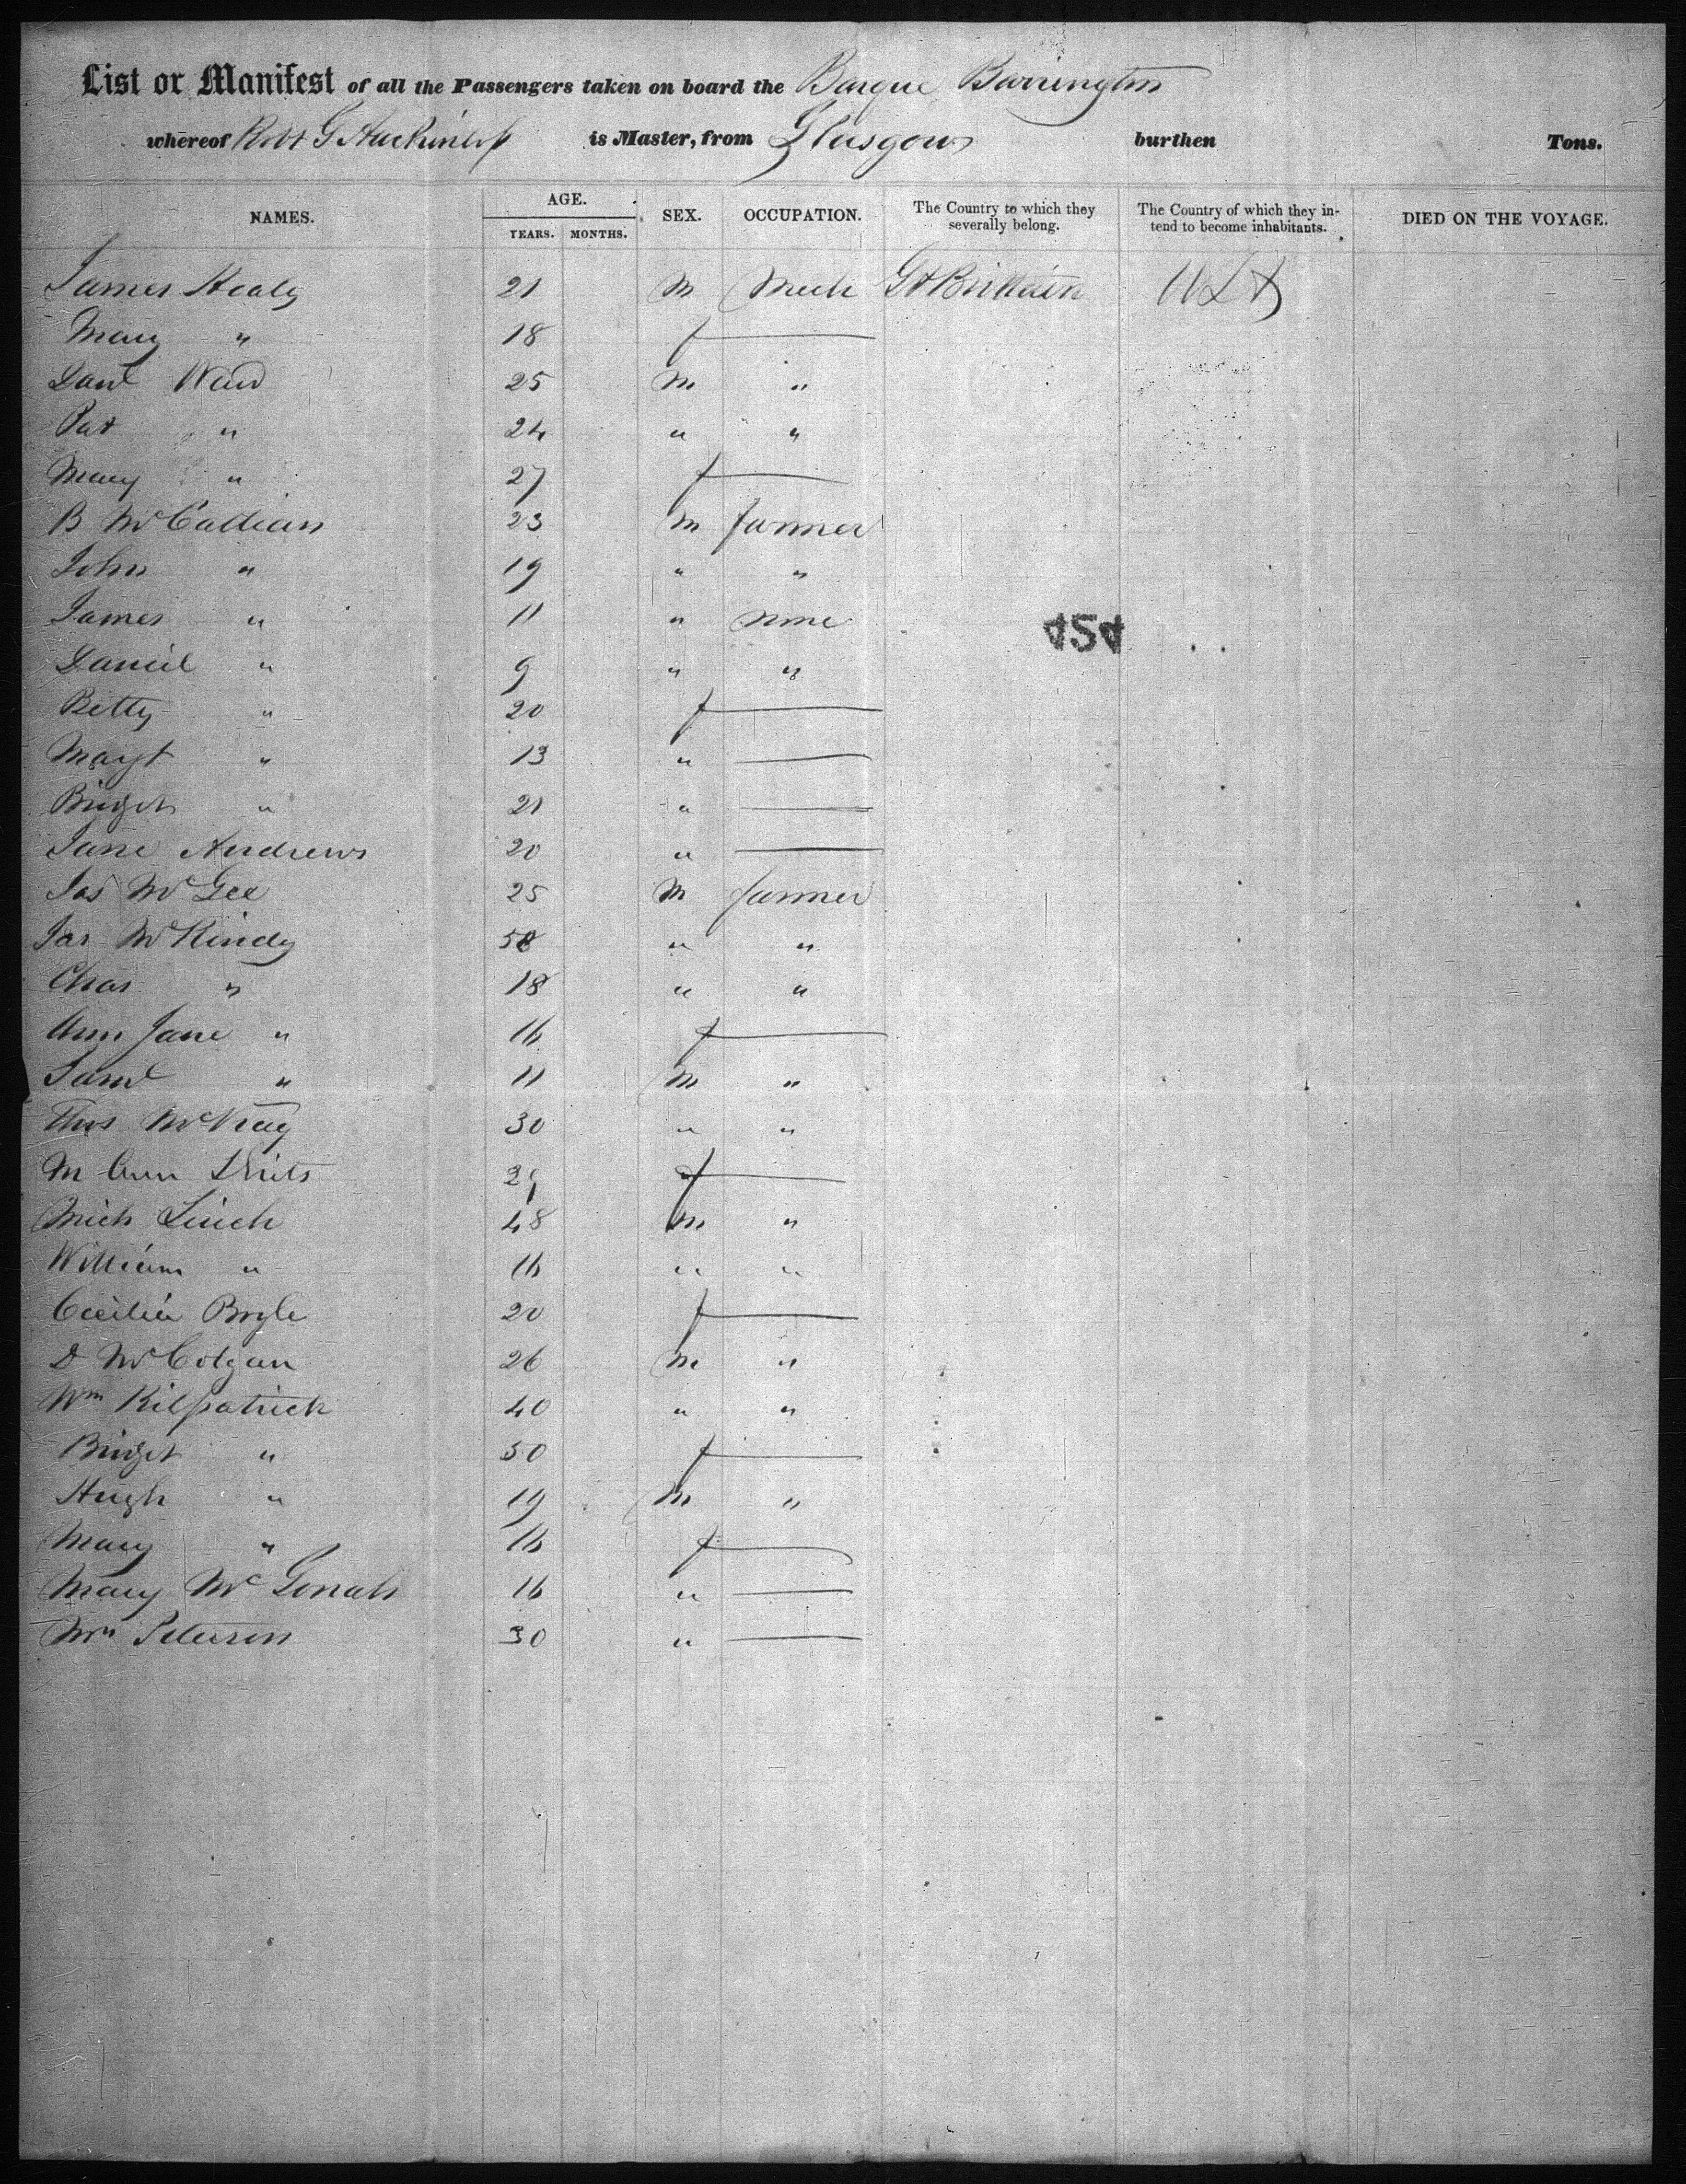 List or Manifest of all the Passengers taken on board the Barque Barrington
whereof Robt G Auchinloss is Master, from Glasgow burthen Tons.
NAMES. AGE. YEARS. MONTHS. SEX. OCCUPATION. The Country to which they severally belong. The Country of which they intend to become inhabitants. DIED ON THE VOYAGE.
James Healy 21 M Mech Gt Brittain
Mary " 18 f —
Danl Ward 25 M "
Pat " 24 " "
Mary " 27 f —
B McCallian 23 M farmer
John " 19 " "
James " 11 " none
454
Daniel " 9 " "
Betty " 20 f —
Margt " 13 " —
Bridget " 21 " —
Jane Andrews 20 " —
Jas McGee 25 M farmer
Jas McKindy 58 " "
Chas " 18 " "
Ann Jane " 16 f —
Saml " 11 M "
Thos McKay 30 " "
M Ann f —
Mich Linch 48 M "
William " 16 " "
Cecilia Boyle 20 f —
D McColgan 26 M "
Wm Kilpatrick 40 " "
Bridget " 50 f —
Hugh " 19 M "
Mary " 16 f —
Mary Mc 16 " —
Mrs Peterson 30 " —